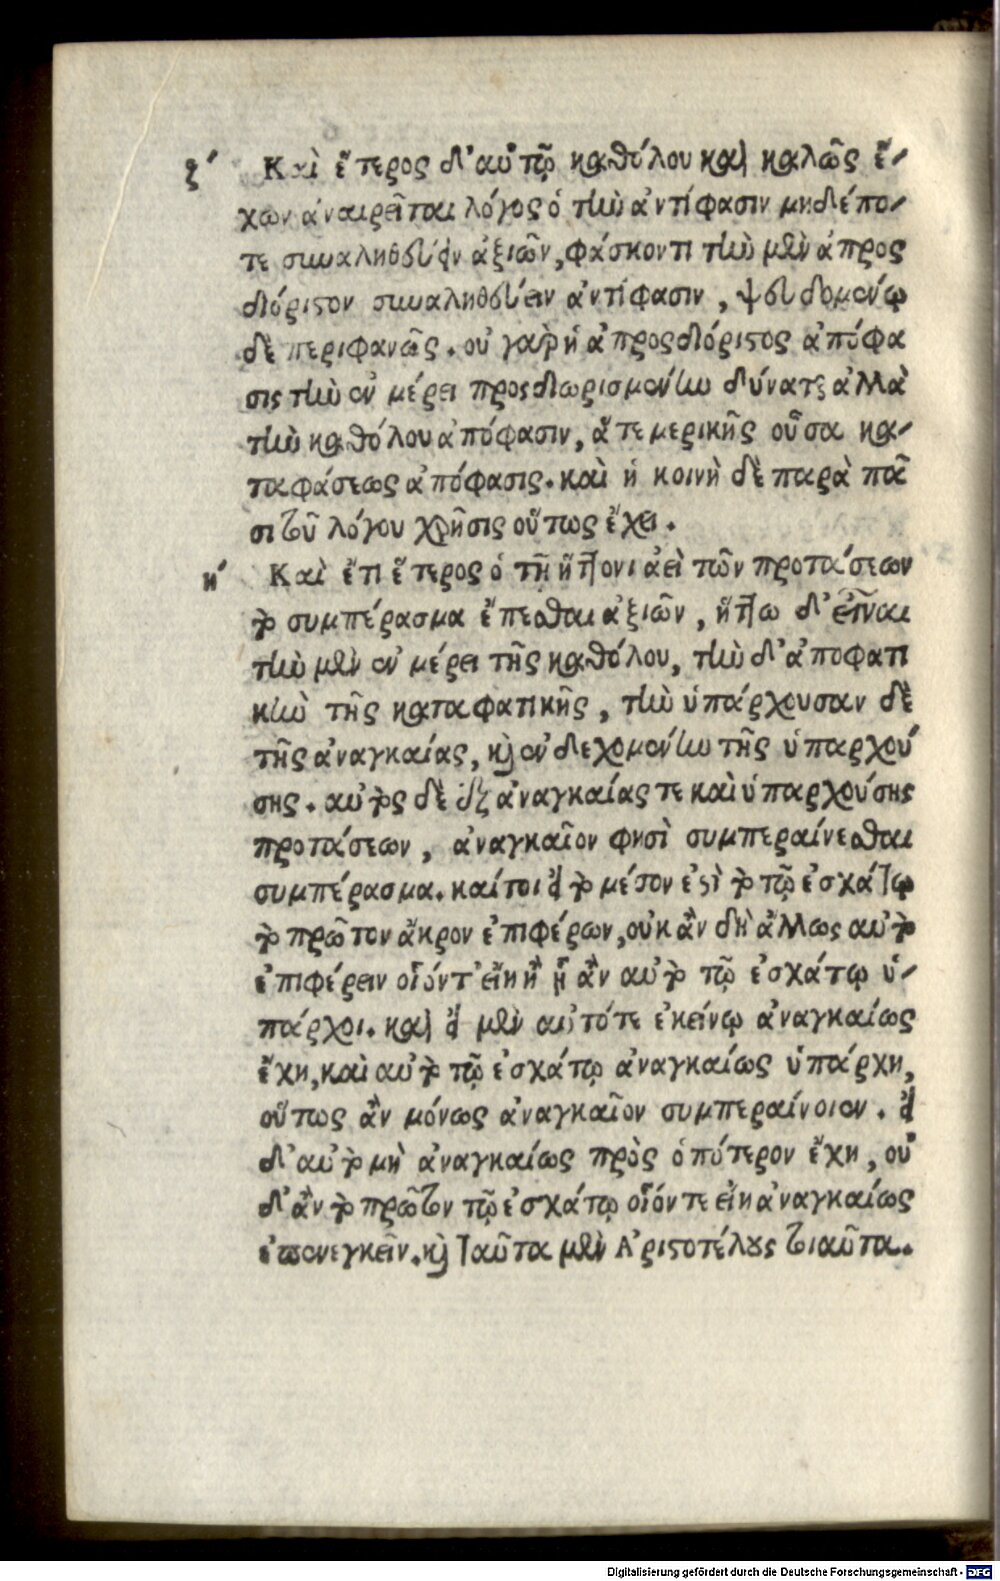 ζʹ Καὶ ἕτερος δ’ αὐτῷ καθόλου καὶ καλῶς ἔ-
χων ἀναιρεῖται λόγος ὁ τὴν ἀντίφασιν μηδέπο-
τε συναληθεύειν ἀξιῶν, φάσκοντι τὴν μὲν ἀπρος
διόριστον συναληθεύειν ἀντίφασιν, ψευδομένῳ
δὲ περιφανῶς. οὐ γὰρ ἡ ἀπροςδιόριστος ἀπόφα
σις τὴν ἐν μέρει προςδιωρισμένην δύναται ἀλλὰ
τὴν καθόλου ἀπόφασιν, ἅτε μερικῆς οὖσα κα-
ταφάσεως ἀπόφασις. καὶ ἡ κοινὴ δὲ παρὰ πᾶ
σι τοῦ λόγου χρῆσις οὕτως ἔχει.
ηʹ Καὶ ἔτι ἕτερος ὁ τῇ ἥττονι ἀεὶ τῶν προτάσεων
τὸ συμπέρασμα ἕπεσθαι ἀξιῶν, ἥττω δ’ εἶναι
τὴν μὲν ἐν μέρει τῆς καθόλου, τὴν δ’ ἀποφατι
κὴν τῆς καταφατικῆς, τὴν ὑπάρχουσαν δὲ
τῆς ἀναγκαίας, καὶ ἐνδεχομένην τῆς ὑπαρχού
σης. αὐτὸς δὲ ἐξ ἀναγκαίας τε καὶ ὑπαρχούσης
προτάσεων, ἀναγκαῖον φησὶ συμπεραίνεσθαι
συμπέρασμα. καίτοι εἰ τὸ μέσον ἐστὶ τὸ τῷ ἐσχάτῳ
τὸ πρῶτον ἄκρον ἐπιφέρων, οὐκ ἂν δὴ ἄλλως αὐτὸ
ἐπιφέρειν οἷόντ’ εἴη ἢ ᾗ ἂν αὐτὸ τῷ ἐσχάτῳ ὑ-
πάρχοι. καὶ εἰ μὲν αὐτότε ἐκείνῳ ἀναγκαίως
ἔχη, καὶ αὐτὸ τῷ ἐσχάτῳ ἀναγκαίως ὑπάρχη,
οὕτως ἂν μόνως ἀναγκαῖον συμπεραίνοιεν. εἰ
δ’ αὐτὸ μὴ ἀναγκαίως πρὸς ὁπότερον ἔχη, οὐ
δ’ ἂν τὸ πρῶτον τῷ ἐσχάτῳ οἷόν τε εἴη ἀναγκαίως
ἐπενεγκεῖν. καὶ ταῦτα μὲν Ἀριστοτέλους τοιαῦτα.
Digitalisierung gefördert durch die Deutsche Forschungsgemeinschaft - DFG